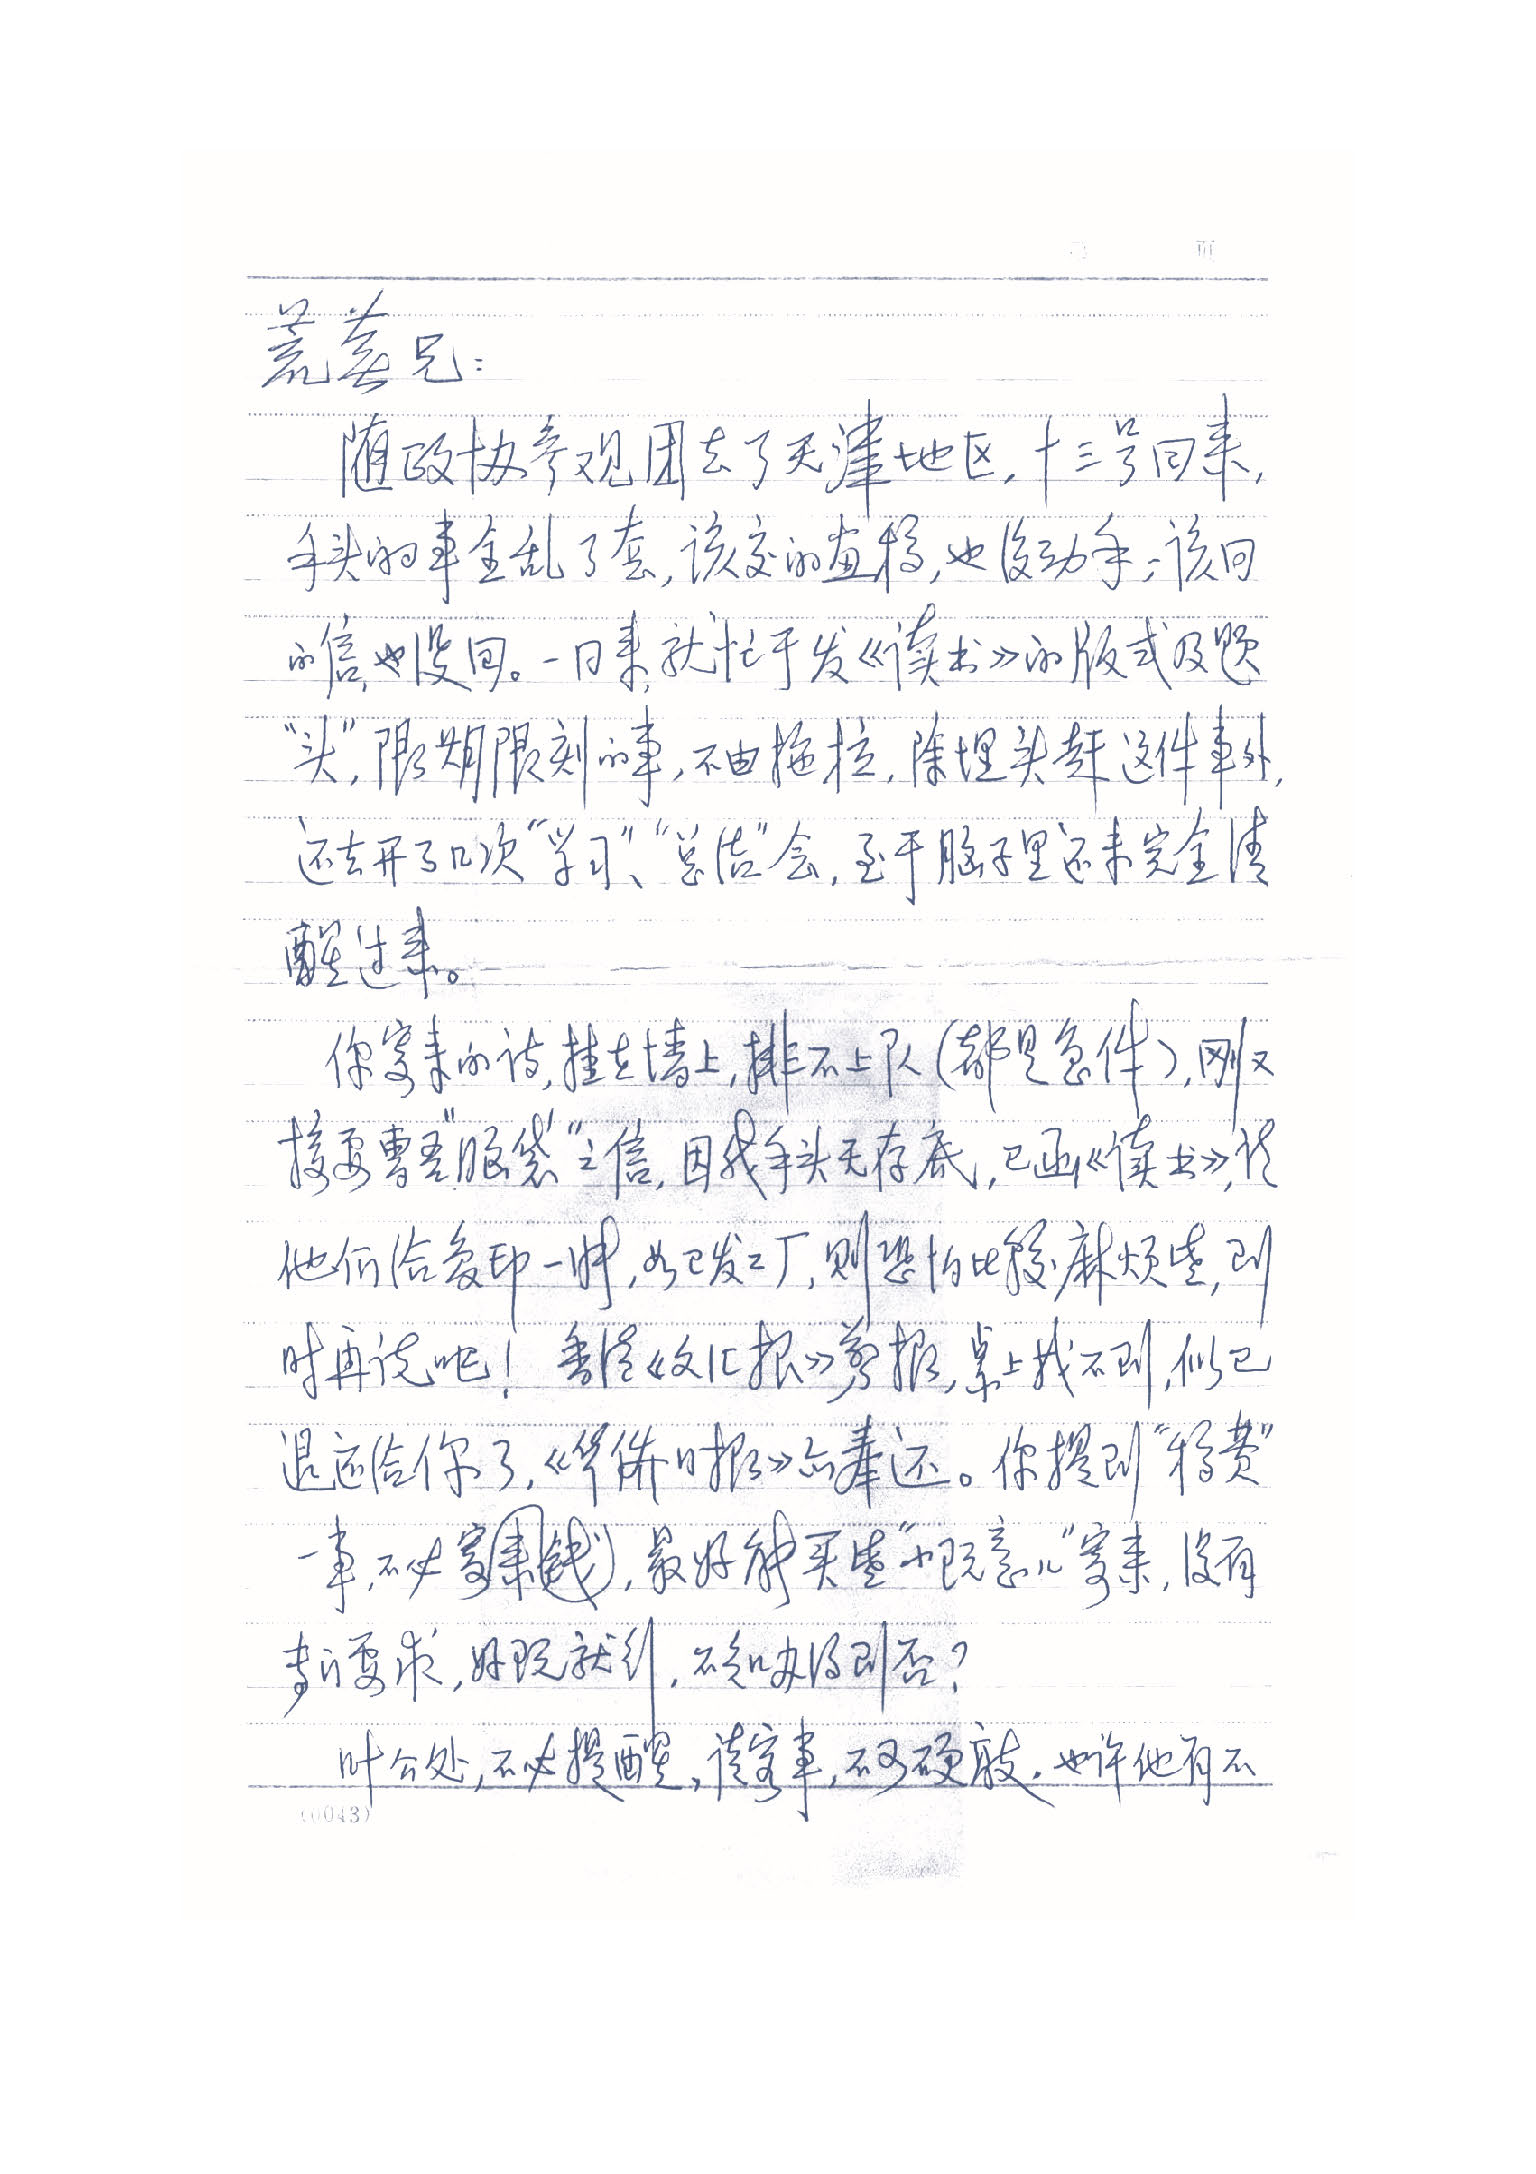 页
荒芜兄：
随政协参观团去了天津地区，十三号回来，
手头的事全乱了套，该交的画稿，也没动手；该回
的信，也没回。一回来，就忙于发《读书》的版式及题
“头”，限期限刻的事，不由拖拉，除埋头赶这件事外，
还去开了几次“学习”、“总结”会，至于脑子里还未完全清
醒过来。
你寄来的诗，挂在墙上，排不上队（都是急件），刚又
接要曹吾“脑袋”之信，因我手头无存底，已函《读书》，请
他们给复印一张，如已发工厂，则恐怕比较麻烦些，到
时再说吧！ 香港《文汇报》剪报，桌上找不到，似已
退还给你了，《华侨日报》亦奉还。你提到“稿费”
一事，不必寄来（钱），最好能买些“小玩意儿”寄来，没有
专门要求，好玩就行，不知办得到否？
叶公处，不必提醒，请客事，不可硬敲，也许他有不
(0043)